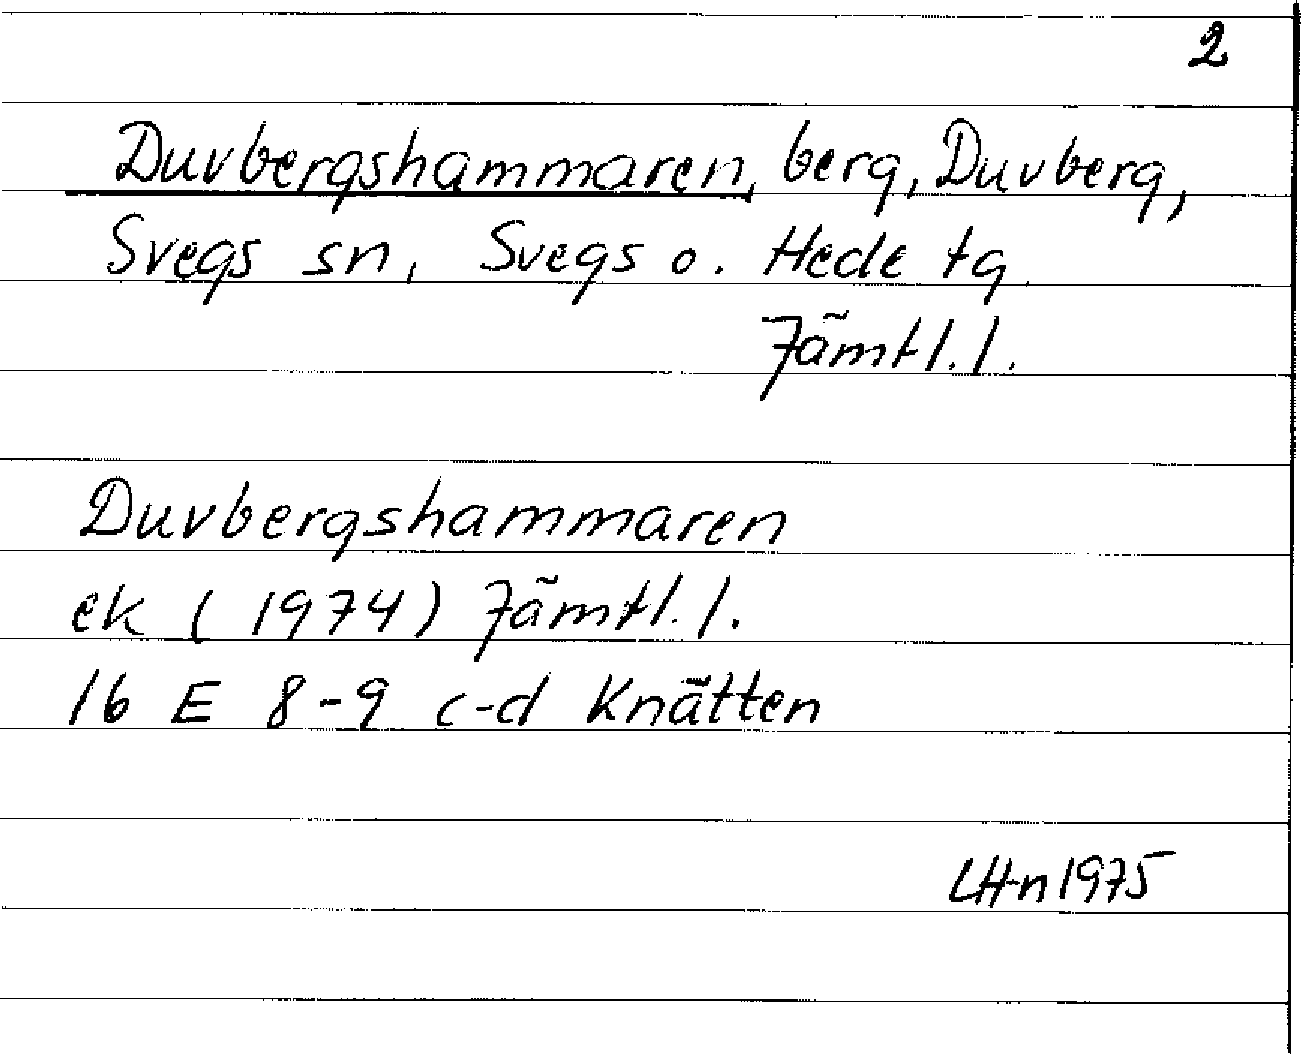 2
Duvbergshammaren, berg, Duvberg,
Svegs sn, Svegs o. Hede tg
Jämtl. l.
Duvbergshammaren
ek (1974) Jämtl. l.
16 E 8-9 c-d Knätten
LHn 1975